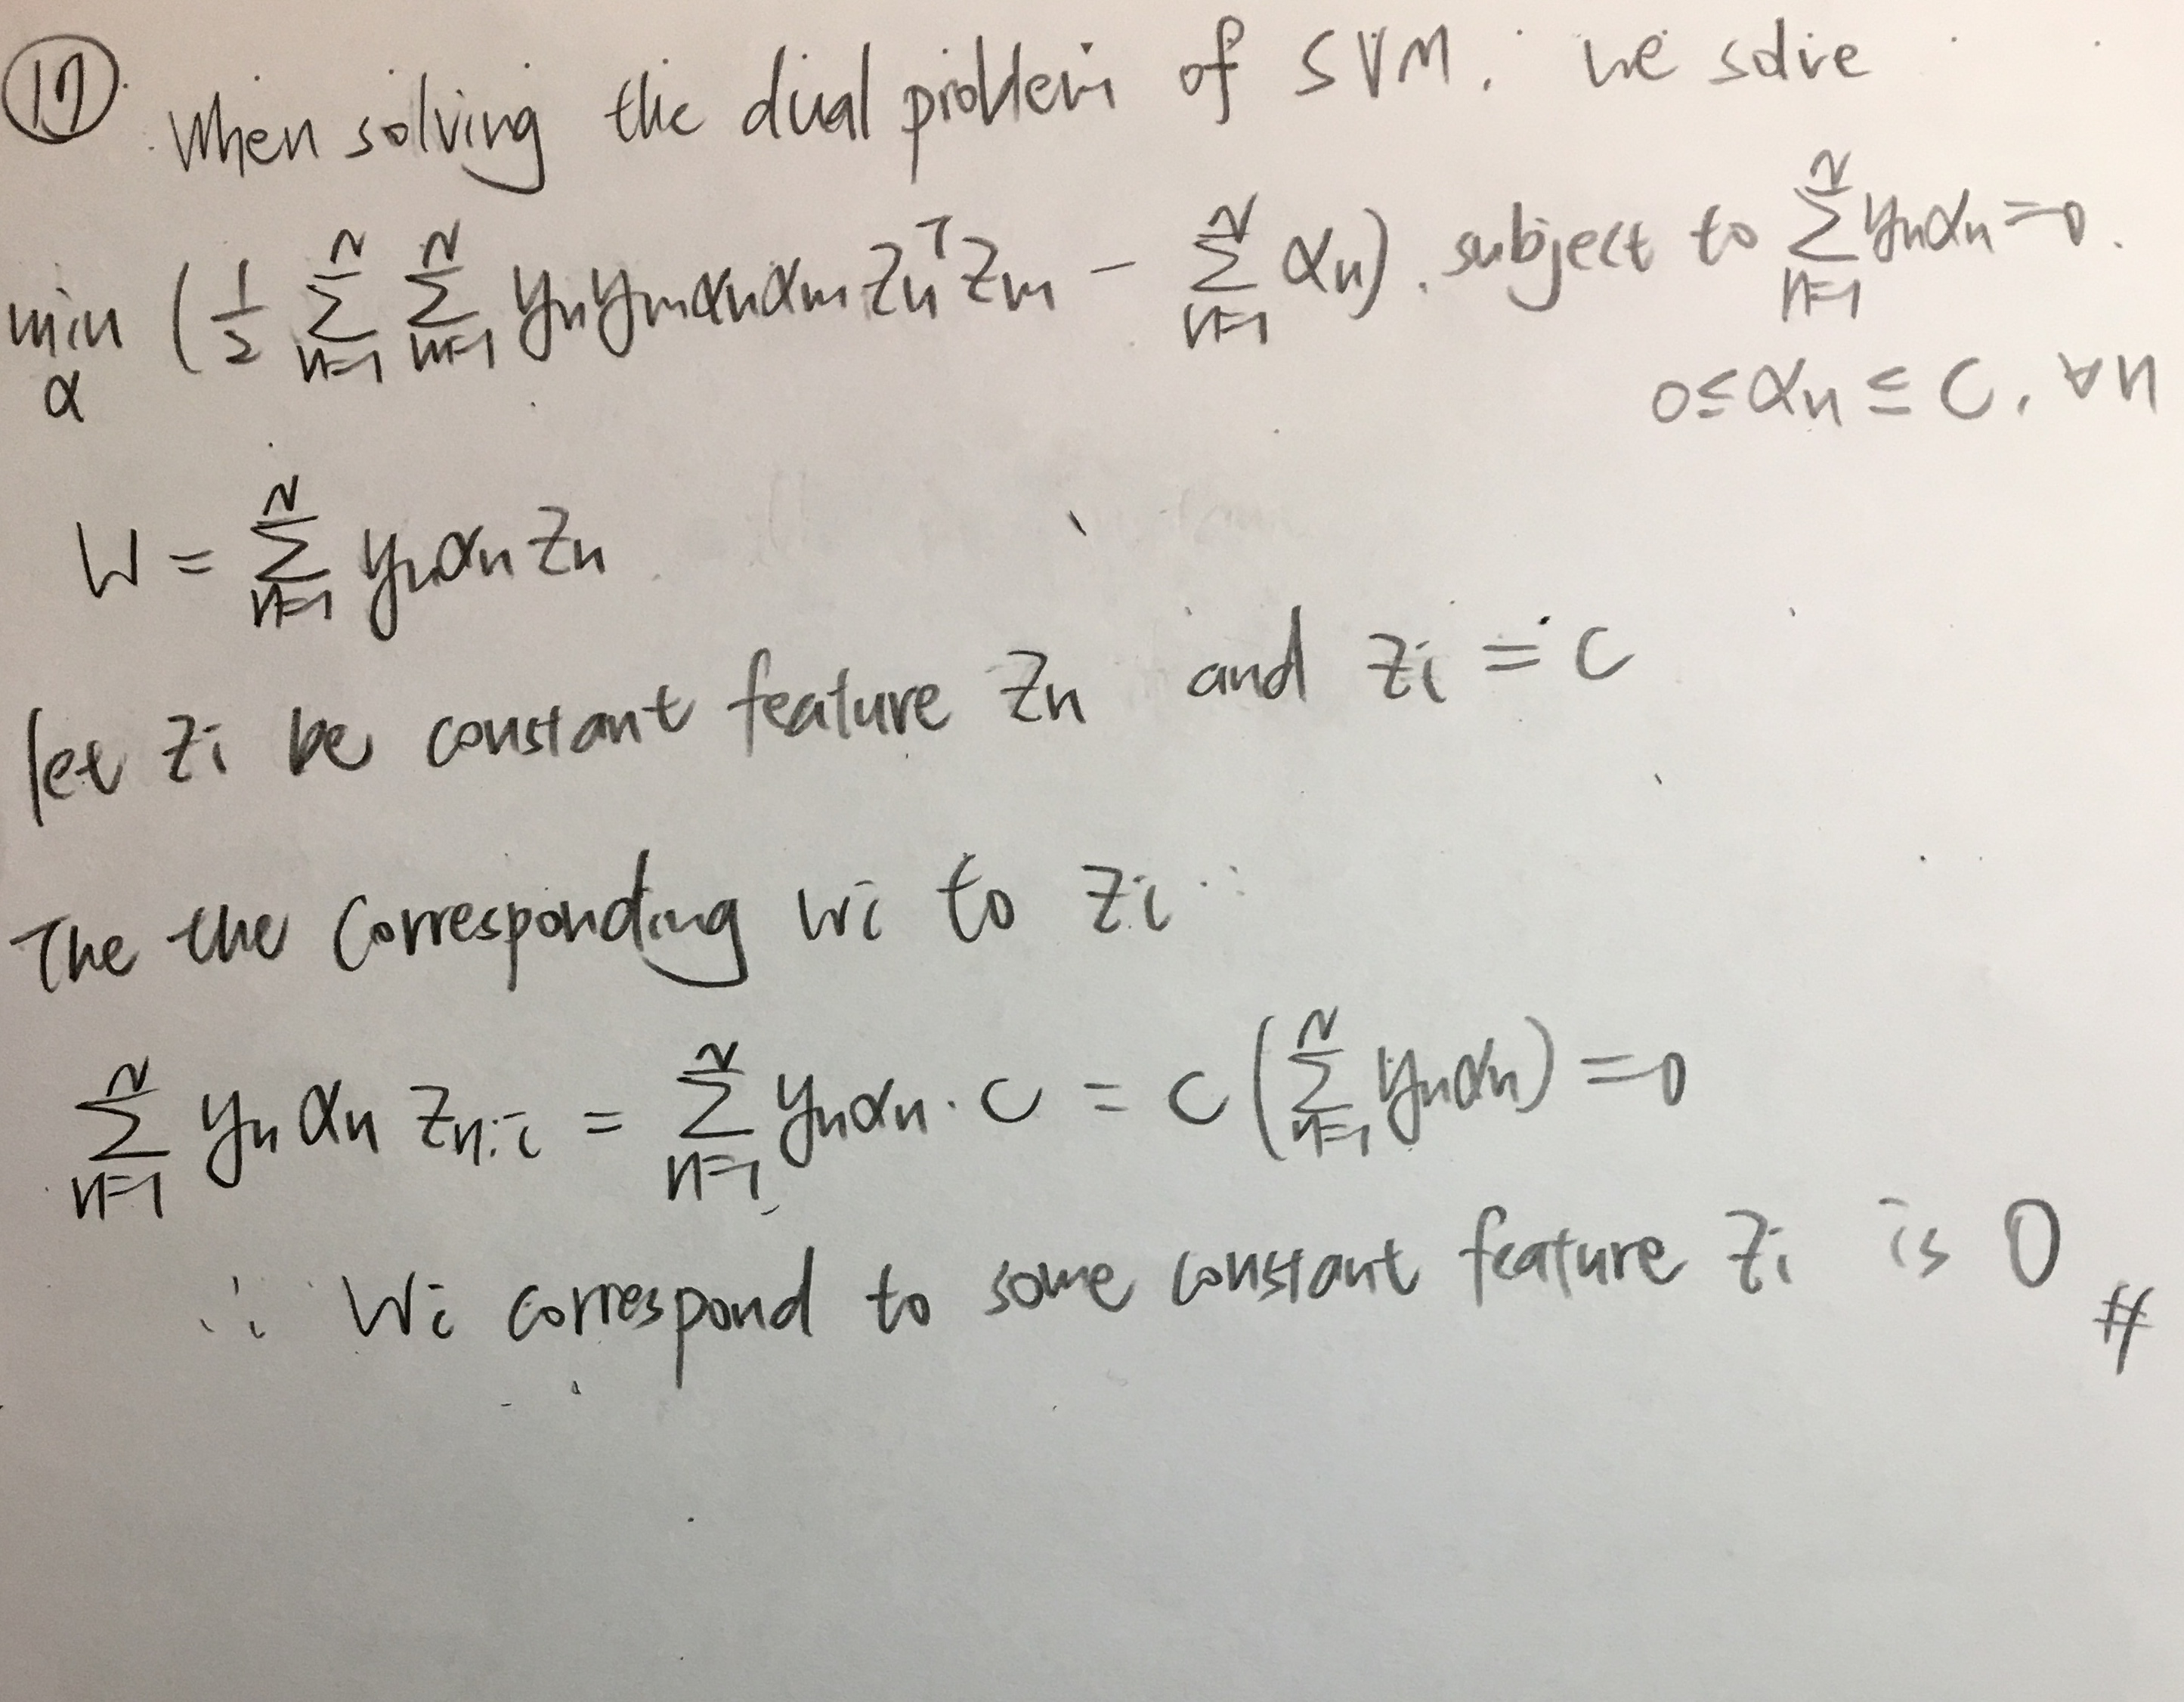 ⑰ When solving the dual problem of SVM, we solve
min α ( 1/2 Σ_{n=1}^{N} Σ_{m=1}^{N} yₙyₘαₙαₘzₙᵀzₘ − Σ_{n=1}^{N} αₙ). subject to Σ_{n=1}^{N} yₙαₙ=0.
0≤αₙ≤C, ∀n
W = Σ_{n=1}^{N} yₙαₙzₙ
let zᵢ be constant feature zₙ and zᵢ = c
The the corresponding wᵢ to zᵢ
Σ_{n=1}^{N} yₙ αₙ z_{n,i} = Σ_{n=1}^{N} yₙαₙ · c = c (Σ_{n=1}^{N} yₙαₙ) =0
∴ Wᵢ correspond to some constant feature zᵢ is 0 #